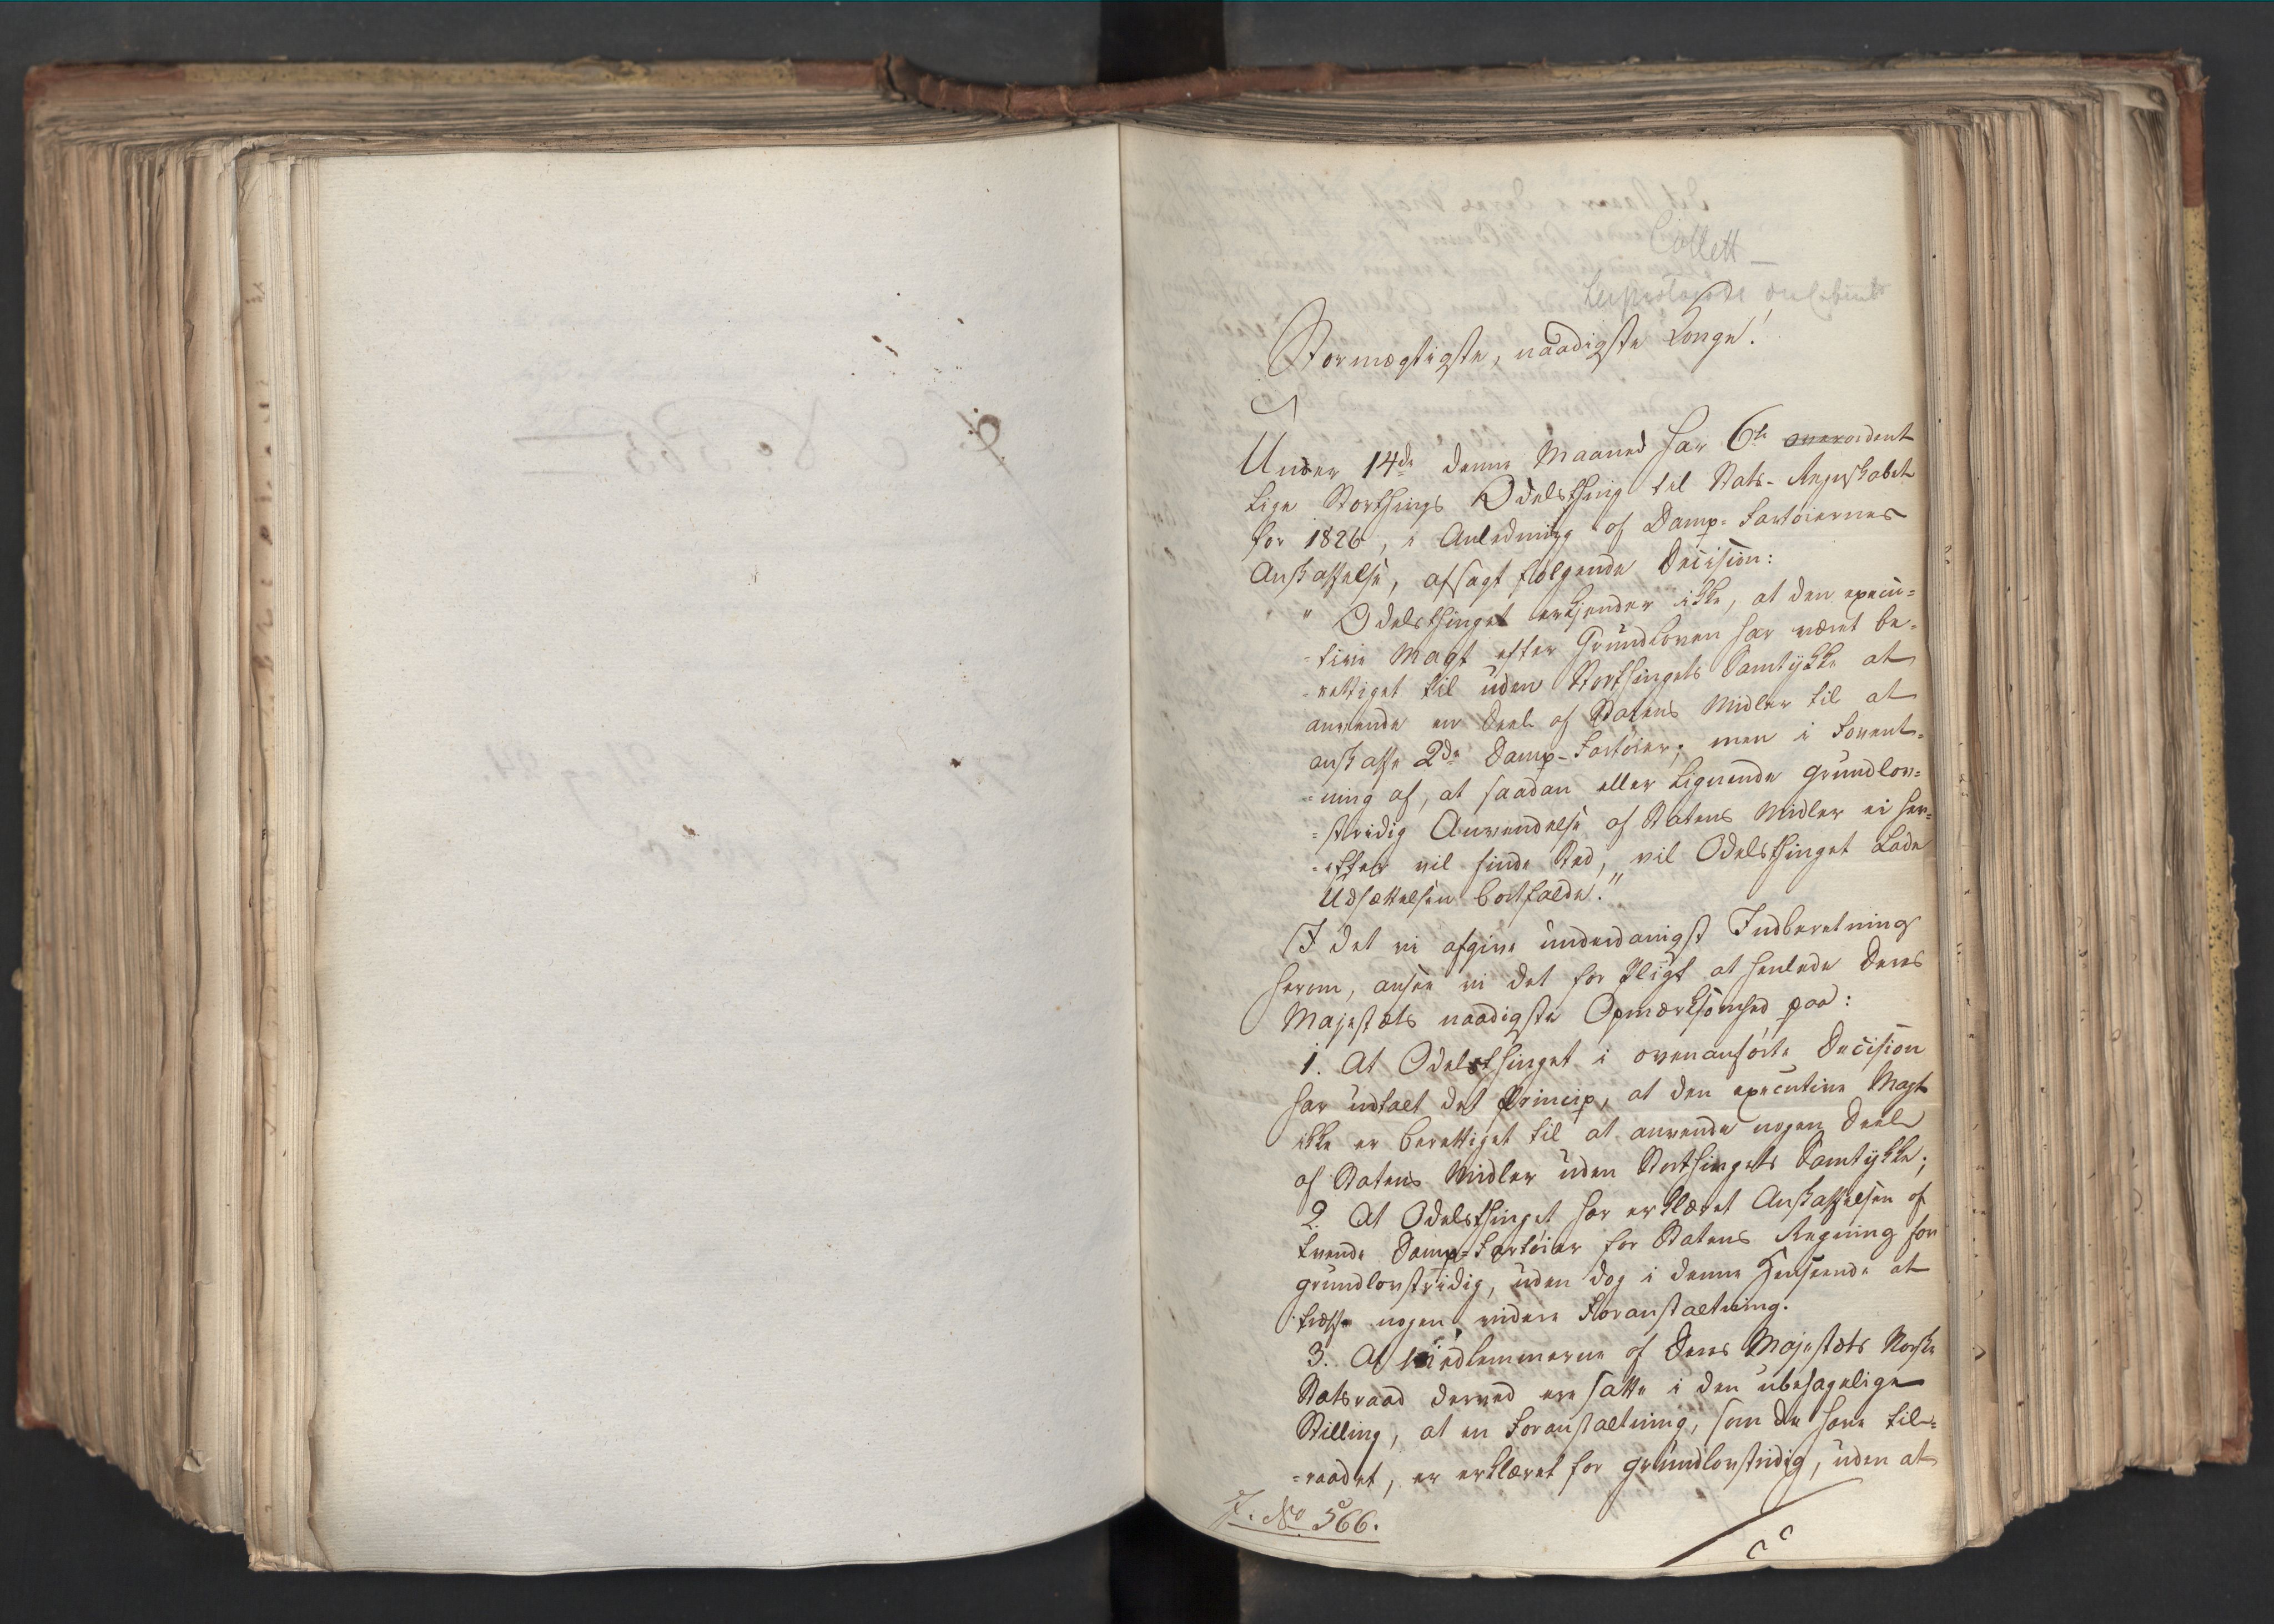 Collett
Stormægtigste, naadigste Konge!
Under 14de denne Maaned har 6te overordent
lige Storthings Odelsthing til Stats-Regnskabet
for 1826, i Anledning af Damp-Fartøiernes
Anskaffelse, afsagt følgende Decision:
" Odelsthinget erkjender ikke, at den execu=
=tive Magt efter Grundloven har været be=
=rettiget til uden Storthingets Samtykke at
anvende en Deel af Statens Midler til at
anskaffe 2de Damp-Fartøier; men i Forvent=
=ning af, at saadan eller lignende grundlov=
=stridig Anvendelse af Statens Midler ei her=
=efter vil finde Sted, vil Odelsthinget lade
Udsættelsen bortfalde."
I det vi afgive underdanigst Indberetning
herom, ansee vi det for Pligt at henlede Deres
Majestæts naadigste Opmærksomhed paa:
1. At Odelsthinget i ovenanførte Decision
har udtalt det Princip, at den executive Magt
ikke er berettiget til at anvende nogen Deel
af Statens Midler uden Storthingets Samtykke;
2. At Odelsthinget har erklæret Anskaffelsen af
tvende Damp-Fartøier for Statens Regning for
grundlovstridig, uden dog i denne Henseende at
træffe nogen videre Foranstaltning.
3. At Medlemmerne af Deres Majestæts Norske
Statsraad derved ere satte i den ubehagelige
Stilling, at en Foranstaltning, som de have til=
=raadet, er erklæret for grundlovstridig, uden at
J. No 566.